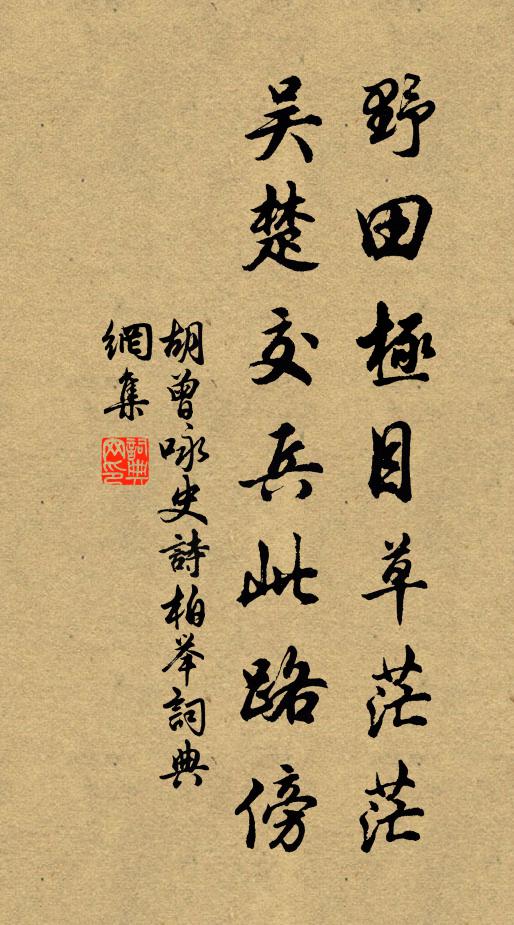 野田極目草茫茫
吳楚交兵此路傍
胡曾咏史詩柏举詞典
網集
詞典網印